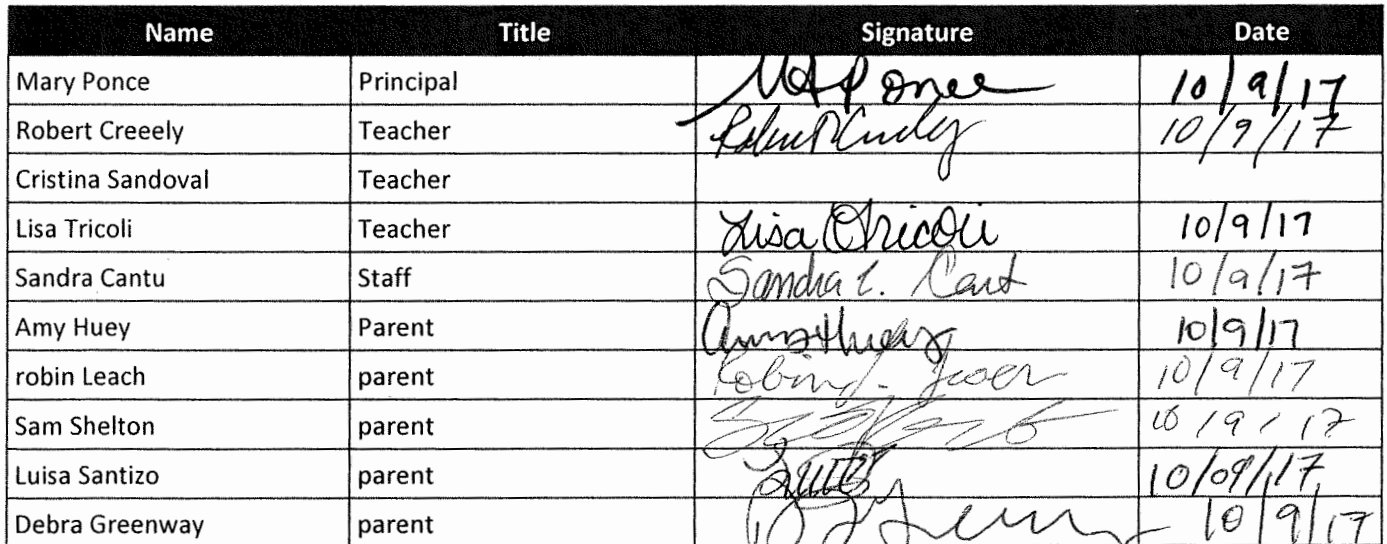 Name Title Signature Date
Mary Ponce Principal MAPonce 10/9/17
Robert Creeely Teacher 10/9/17
Cristina Sandoval Teacher
Lisa Tricoli Teacher Lisa Tricoli 10/9/17
Sandra Cantu Staff Sandra 10/9/17
Amy Huey Parent Amy Huey 10/9/17
robin Leach parent 10/9/17
Sam Shelton parent 10/9/17
Luisa Santizo parent 10/09/17
Debra Greenway parent 10/9/17